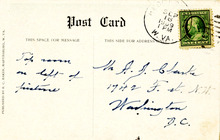 Post Card
SPACE FOR MESSAGE
THIS SIDE FOR
W. VA.
Top room
on left of
picture
Mr. A. J. Clarke
1742 F. st. N.W.
Washington
D.C.